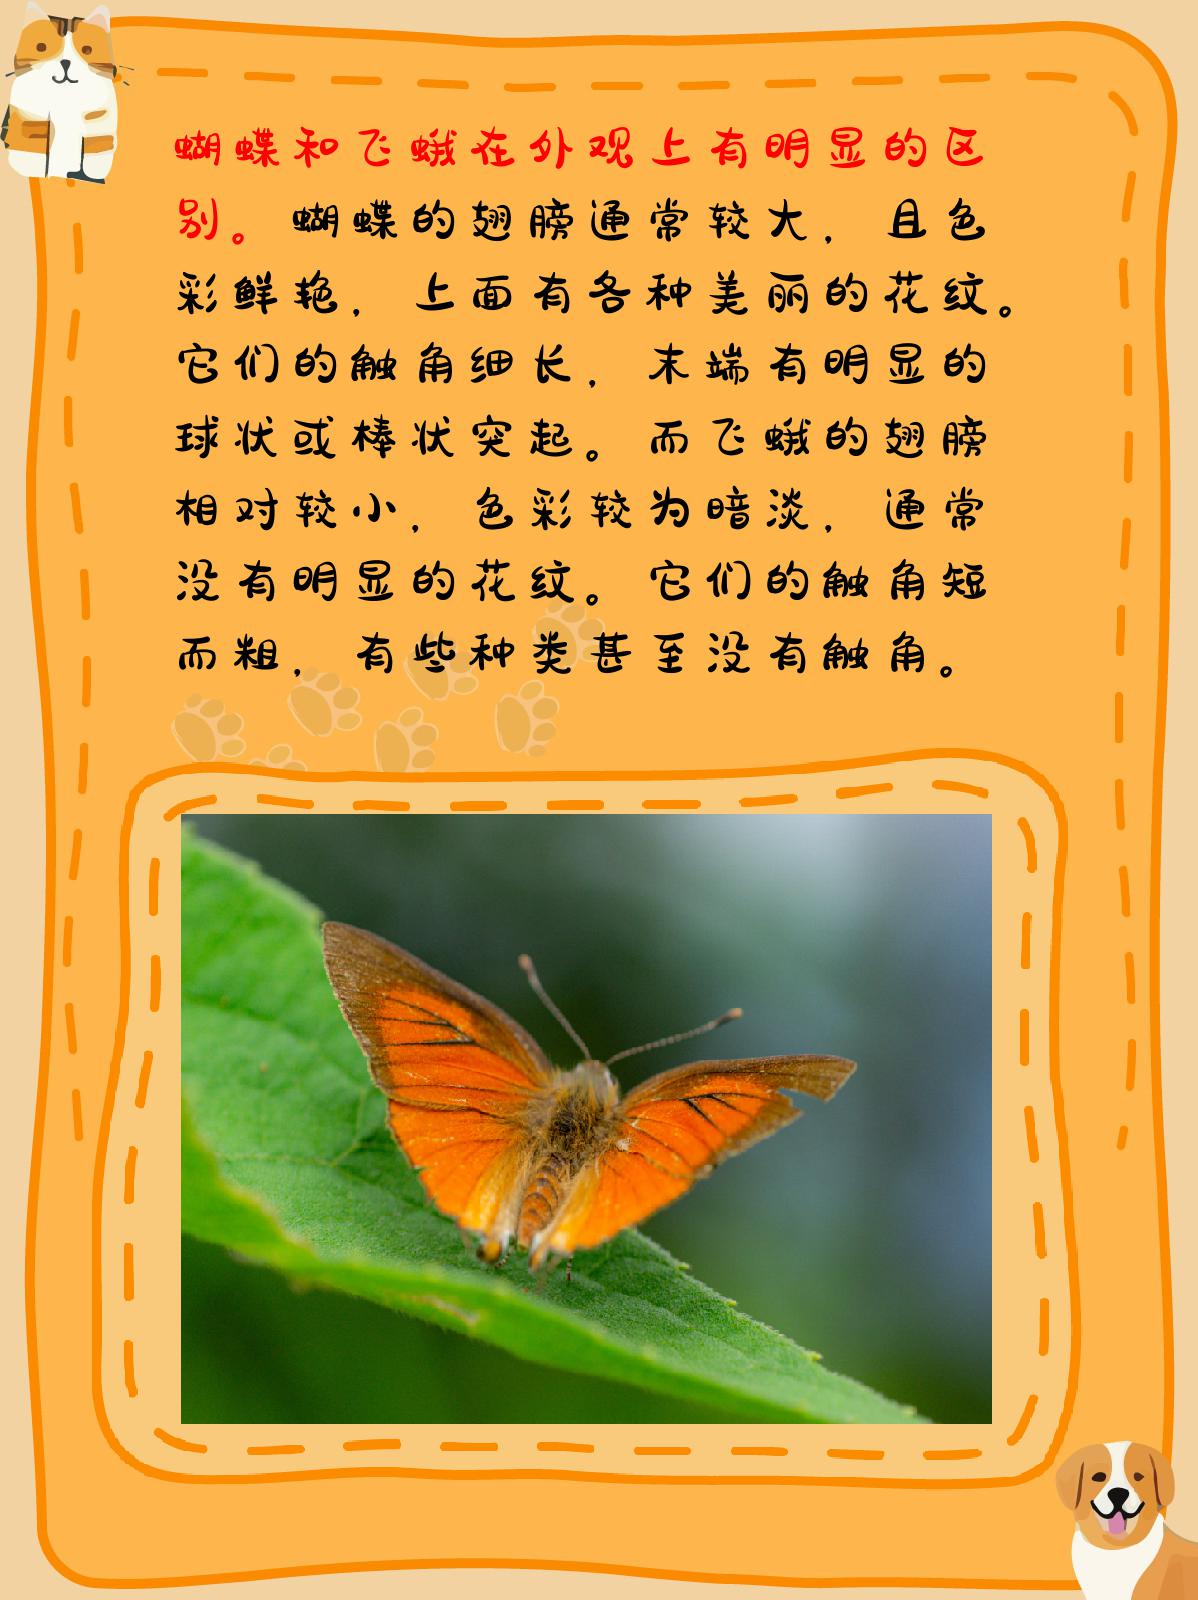 蝴蝶和飞蛾在外观上有明显的区
别。蝴蝶的翅膀通常较大，且色
彩鲜艳，上面有各种美丽的花纹。
它们的触角细长，末端有明显的
球状或棒状突起。而飞蛾的翅膀
相对较小，色彩较为暗淡，通常
没有明显的花纹。它们的触角短
而粗，有些种类甚至没有触角。